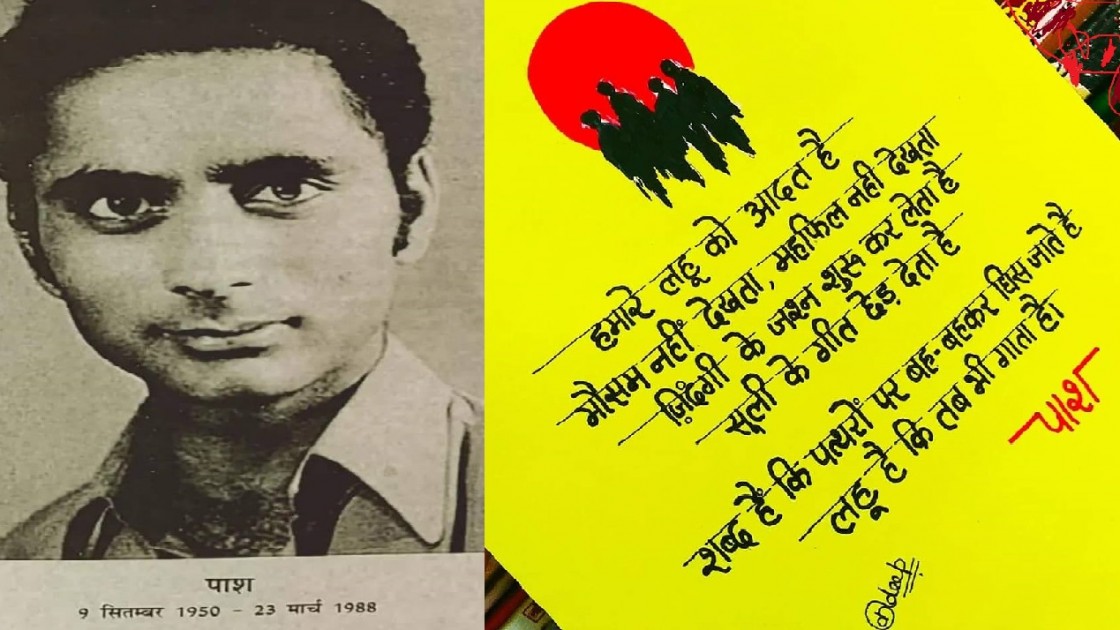 पाश
9 सितम्बर 1950 - 23 मार्च 1988
हमारे लहू को आदत है
मौसम नहीं देखता, महफिल नही देखता
ज़िंदगी के जश्न शुरू कर लेता है
सूली के गीत छेड़ देता है
शब्द हैं कि पत्थरों पर बह-बहकर घिस जाते है
लहू है कि तब भी गाता है।
पाश
@deep